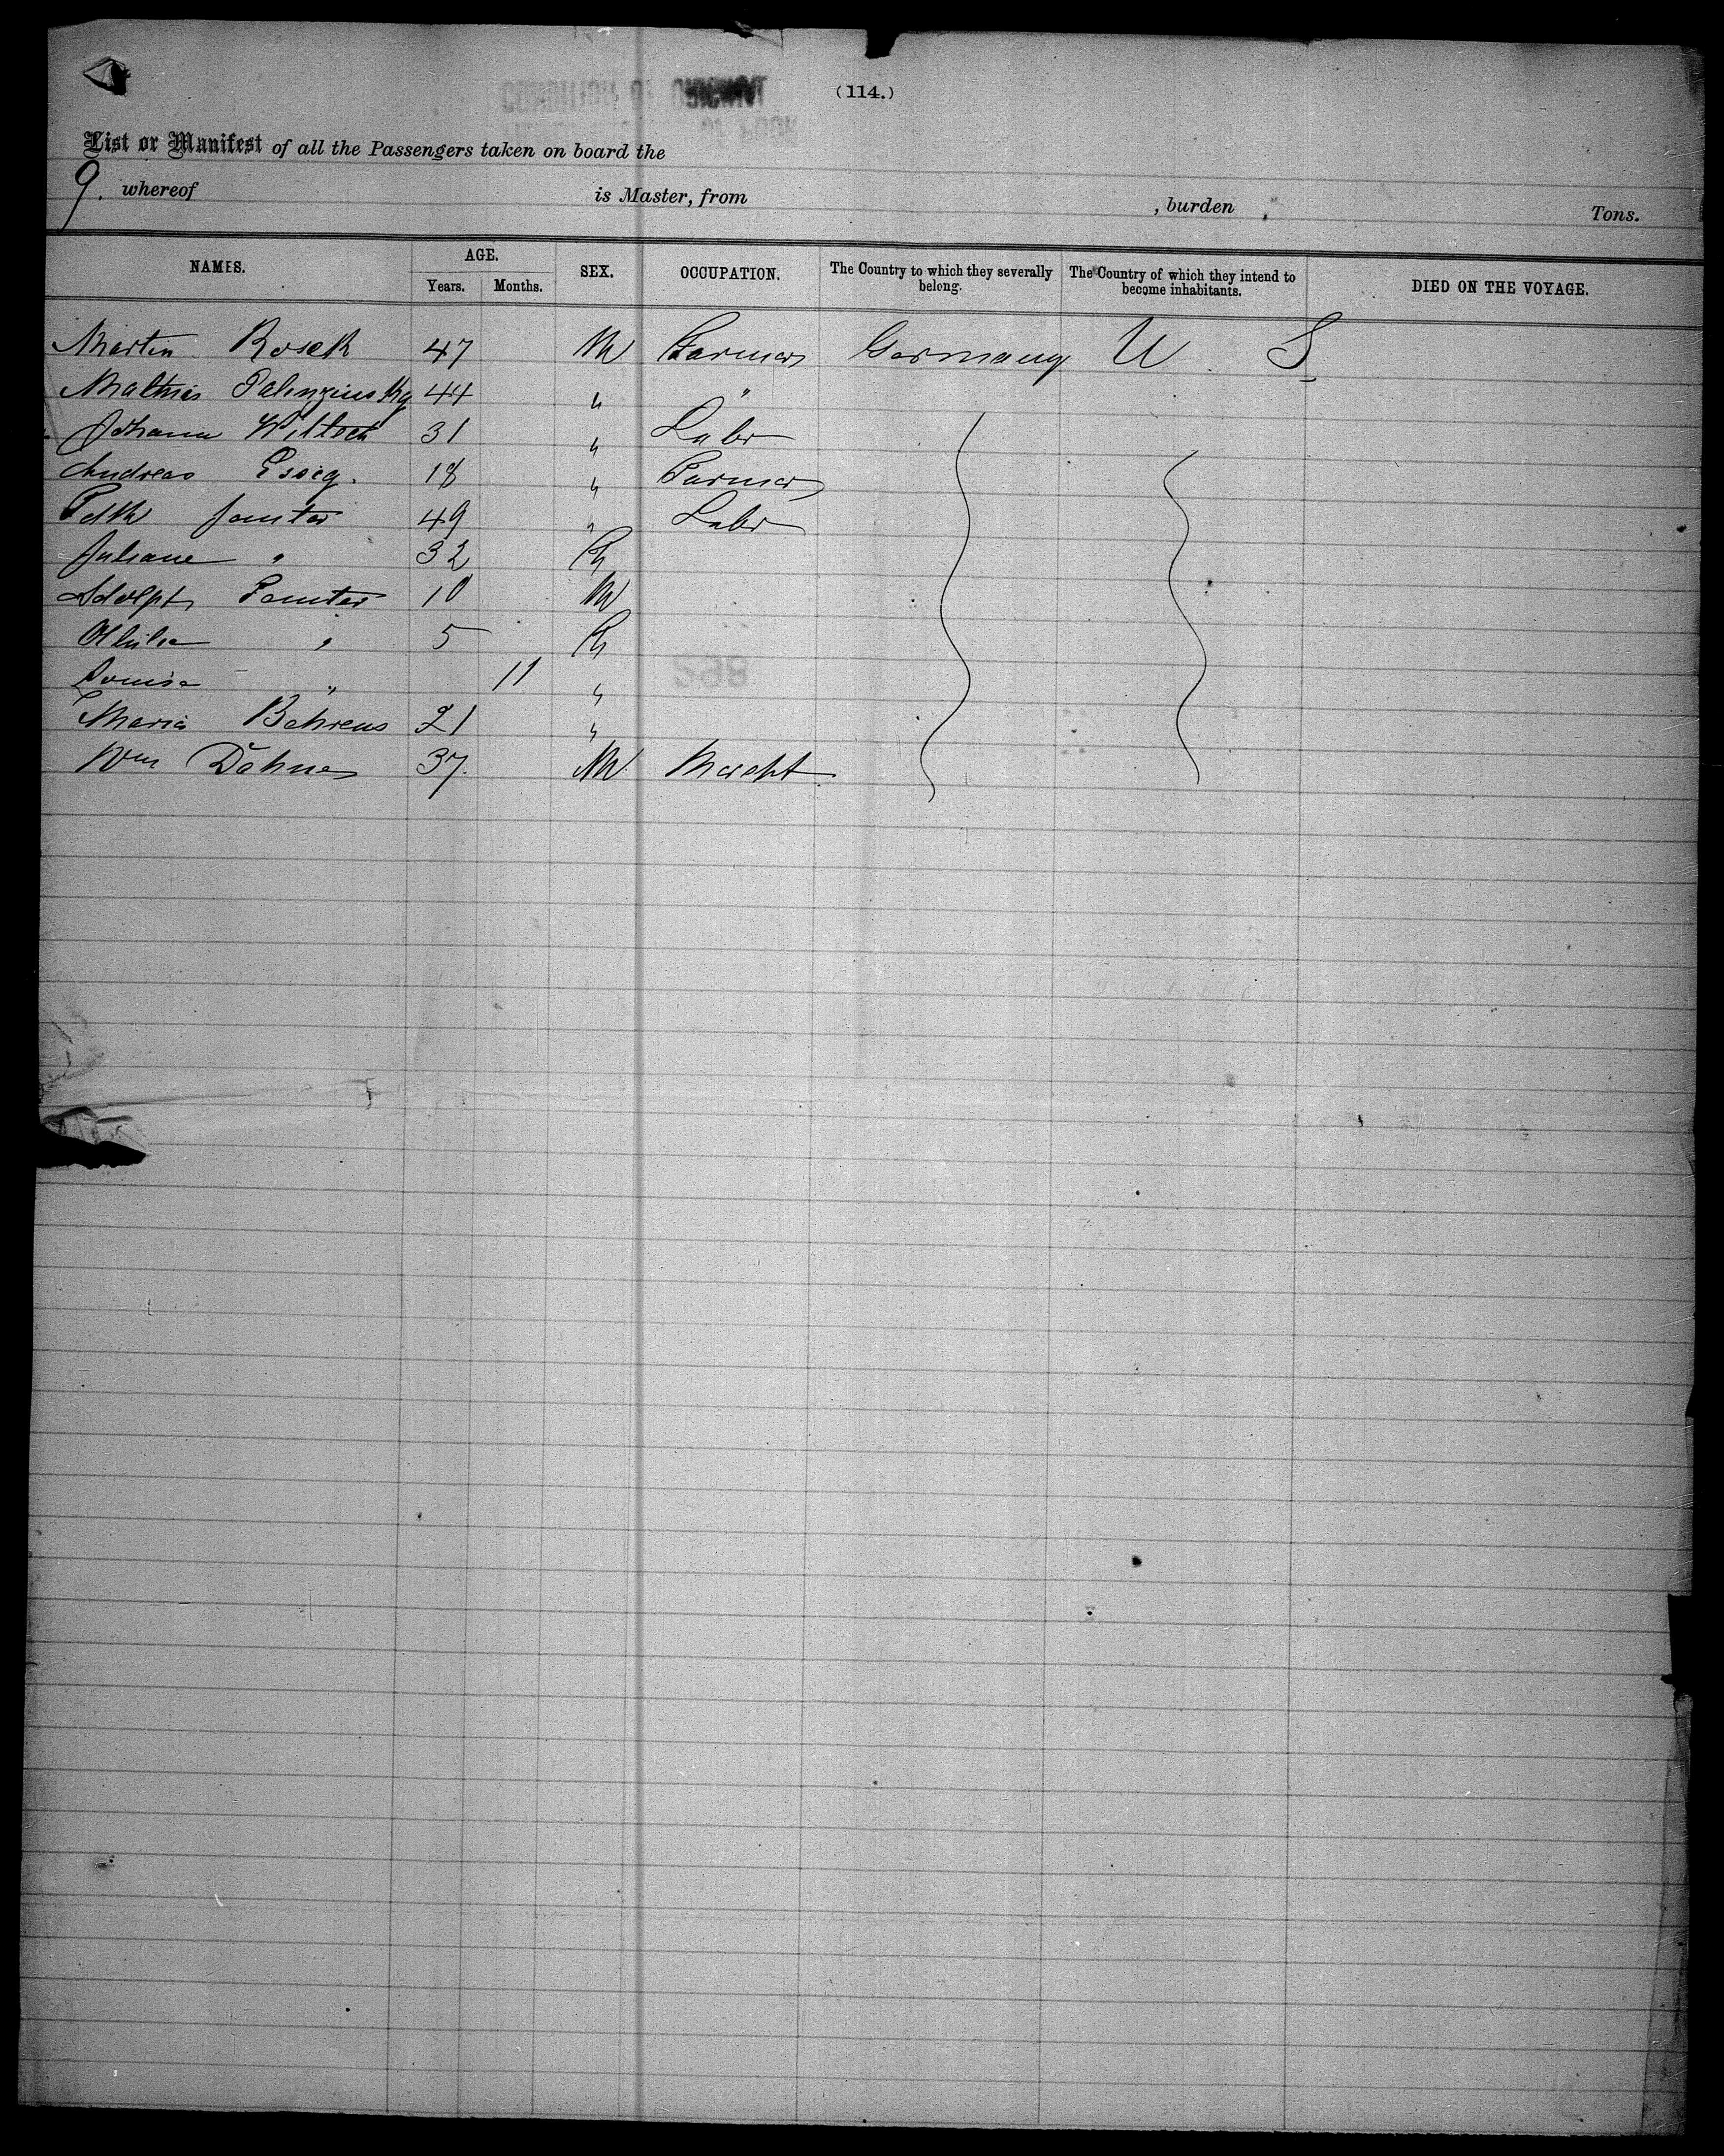 (114.)
List or Manifest of all the Passengers taken on board the
9. whereof is Master, from , burden Tons.
NAMES. AGE. Years. Months. SEX. OCCUPATION. The Country to which they severally belong. The Country of which they intend to become inhabitants. DIED ON THE VOYAGE.
Martin Rosek 47 M Farmer Germany U S
Mathis 44 " "
Johann Wiltock 31 " Labr
Andreas Essig. 18 " Farmer
Fdk 49 " Labr
Juliane " 32 F
Adolph 10 M
Ottilie " 5 F
Louise " 11 "
Maria Behrens 21 "
Wm Dehne 37. M Mercht